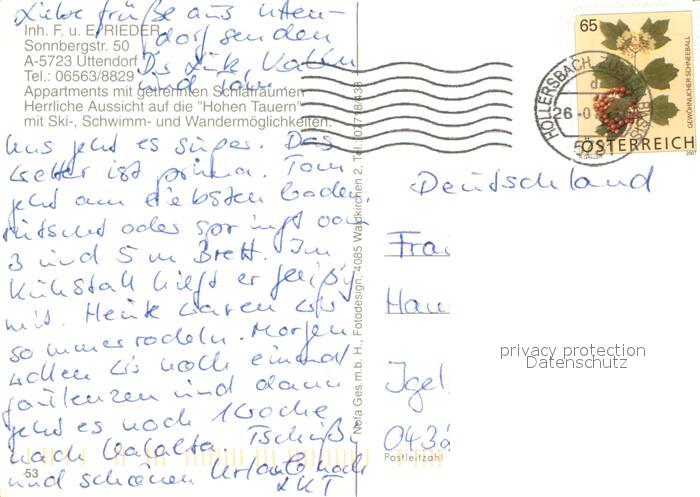 Liebe Grüße aus Utten-
dorf senden
Inh. F. u. E. RIEDER
Sonnbergstr. 50
A-5723 Uttendorf
Tel.: 06563/8829
Appartments mit getrennten Schlafräumen
Herrliche Aussicht auf die "Hohen Tauern"
mit Ski-, Schwimm- und Wandermöglichkeiten.
und
Uns geht es super. Das
Wetter ist prima. Tom
geht am liebsten baden,
rutscht oder springt vom
3 und 5 m Brett. Im
Kuhstall hilft er fleißig
mit. Heute waren wir
sommerrodeln. Morgen
wollen wir noch einmal
faulenzen und dann
geht es noch 1 Woche
nach
Tschüß
und schönen Urlaub noch
53
Nofa Ges.m.b.H., Fotodesign, 4085 Waldkirchen 2, Tel. 07718/438
65
GEWÖHNLICHER SCHNEEBALL
ÖSTERREICH
2007
HOLLERSBACH
26
Deutschland
Frau
Igel
Postleitzahl
privacy protection
Datenschutz